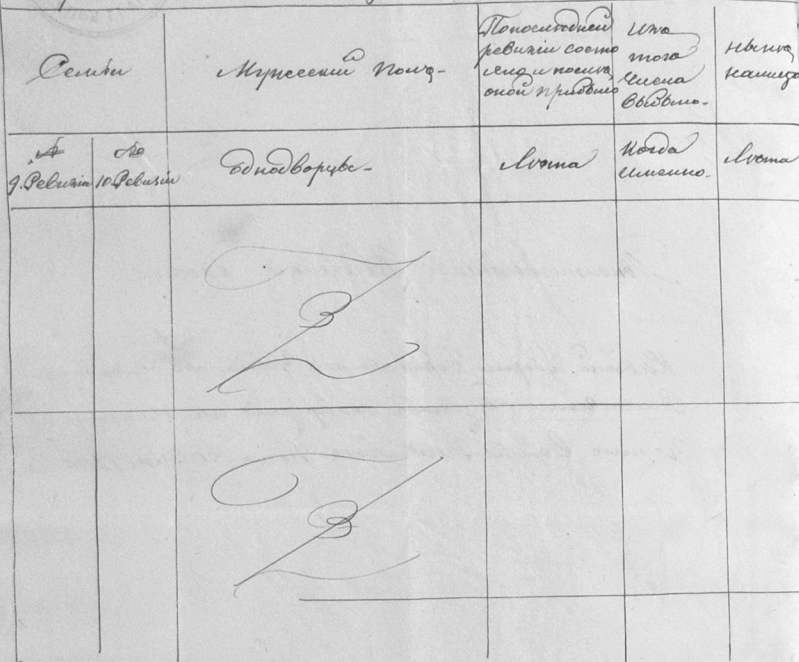 Семьи
Мужеский полъ.
По последней
ревизіи состо
яло и после
оной прибыло
Изъ
того
числа
выбыло.
ныне
налицо
№
9. Ревизіи
№
10. Ревизіи
Однодворцы.
Лѣта
Когда
именно.
Лѣта
З
З